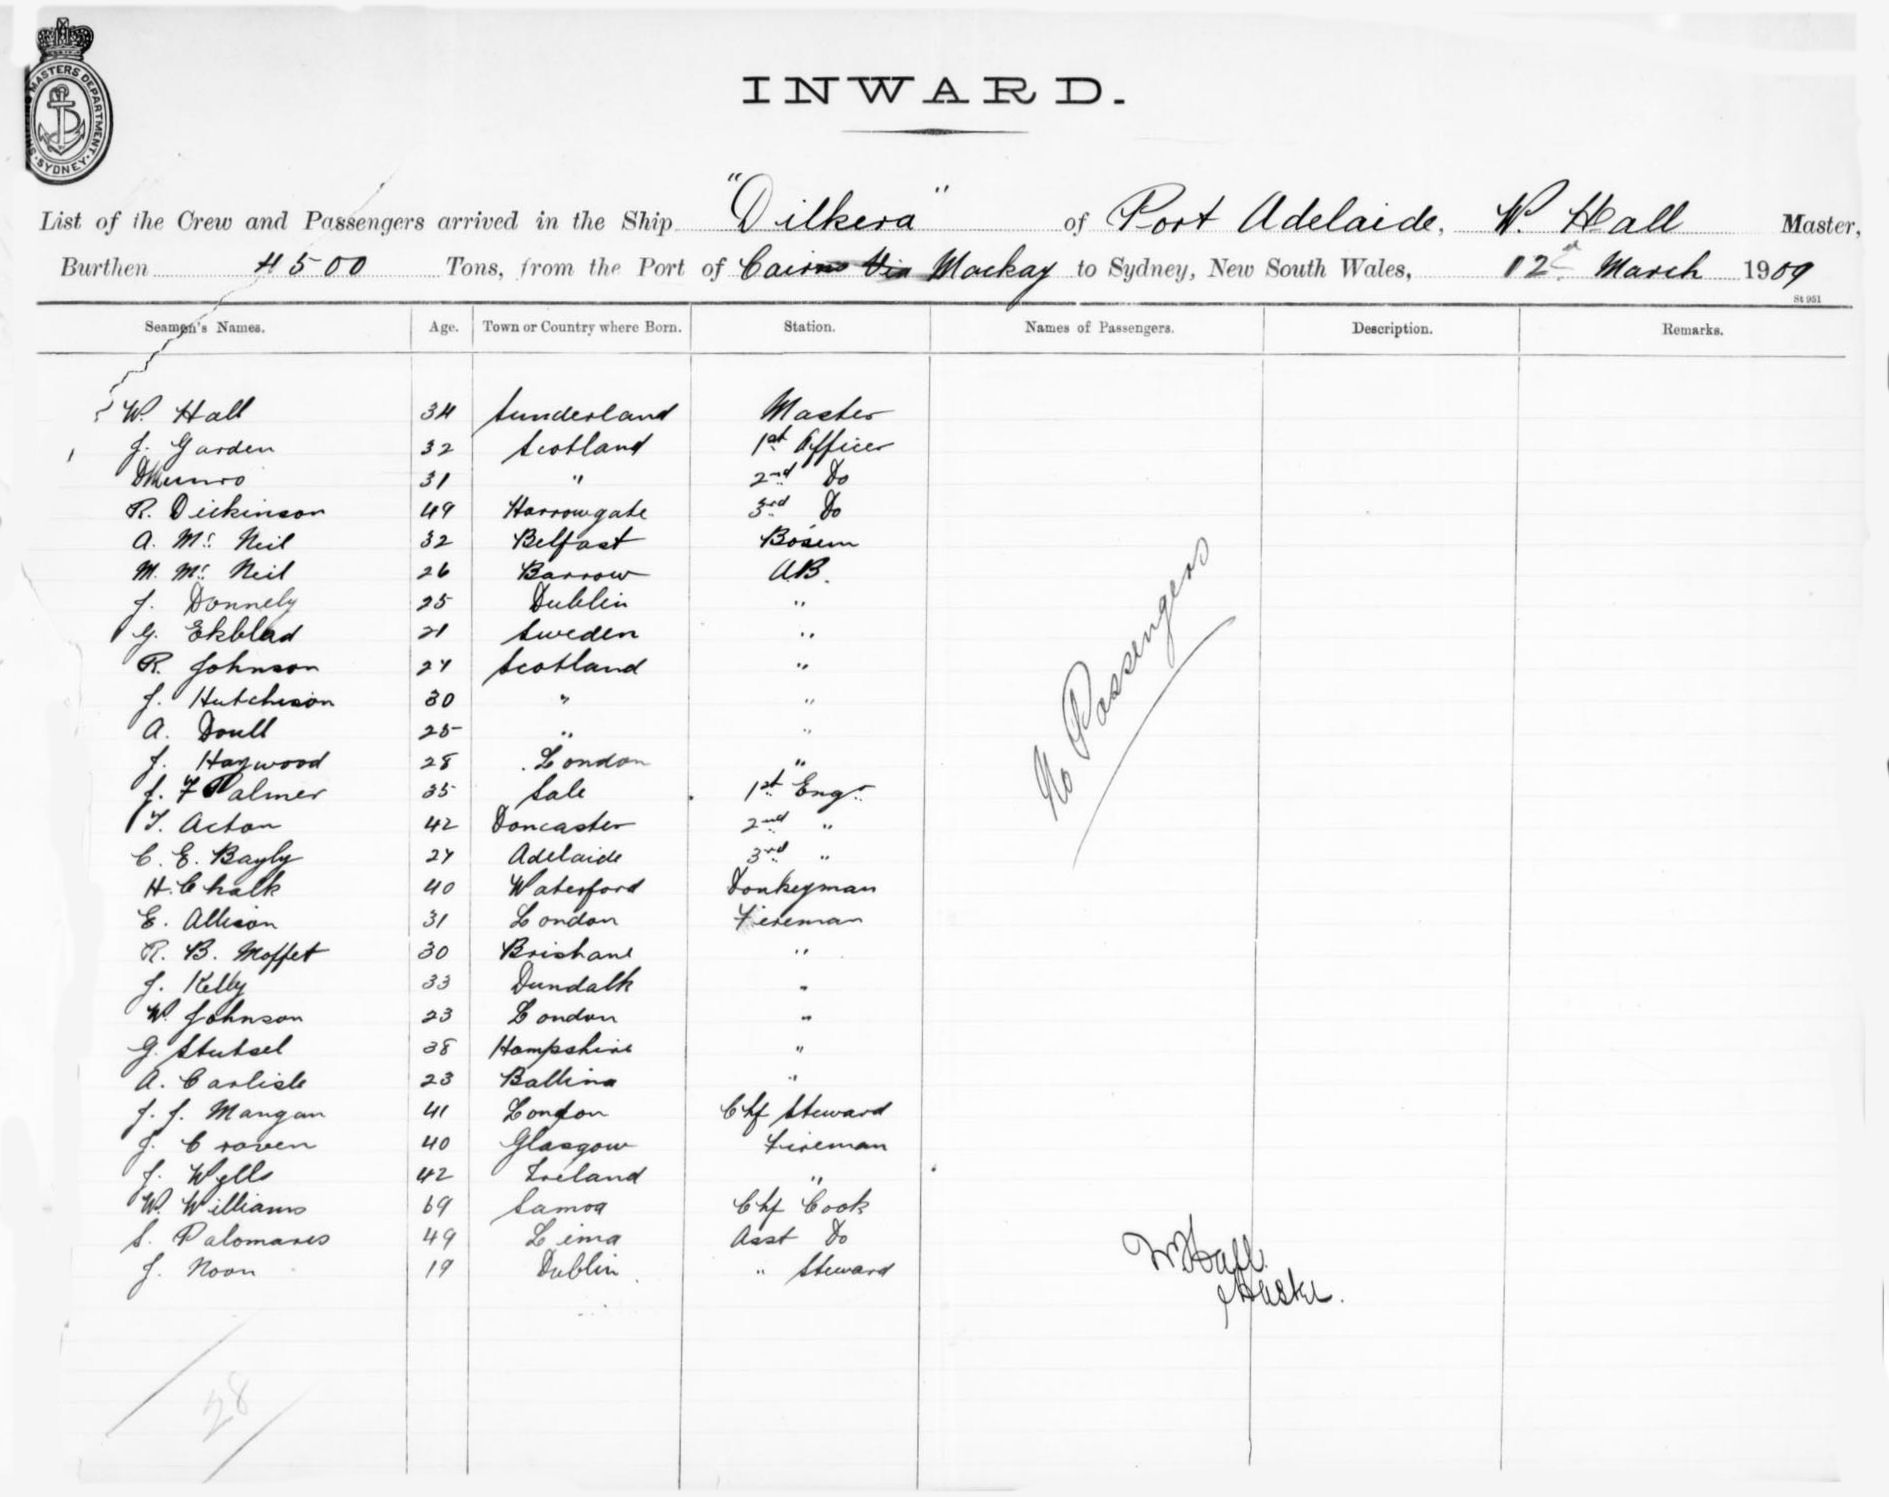 SHIPPING MASTERS DEPARTMENT. SYDNEY.
INWARD.
List of the Crew and Passengers arrived in the Ship "Dilkera" of Port Adelaide, W. Hall Master,
Burthen 4500 Tons, from the Port of Cairns Via Mackay to Sydney, New South Wales, 12th March 1909
St 951
Seamen's Names. Age. Town or Country where Born. Station. Names of Passengers. Description. Remarks.
W. Hall 34 Sunderland Master
J. Garden 32 Scotland 1st Officer
D Munro 31 " 2nd Do
R. Dickinson 49 Harrowgate 3rd Do
A. Mc Neil 32 Belfast Bosun
M. Mc Neil 26 Barrow AB.
J. Donnely 25 Dublin "
G. Ekblad 21 Sweden "
R. Johnson 27 Scotland "
J. Hutchison 30 " "
A. Doull 25 " "
J. Haywood 28 London "
J. F Palmer 35 Sale 1st Engr
T. Acton 42 Doncaster 2nd "
C. E. Bayly 27 Adelaide 3rd "
H. Chalk 40 Waterford Donkeyman
E. Allison 31 London Fireman
R. B. Moffet 30 Brisbane "
J. Kelly 33 Dundalk "
W. Johnson 23 London "
G. Stutsel 38 Hampshire "
A. Carlisle 23 Ballina "
J. J. Mangan 41 London Chf Steward
J. Craven 40 Glasgow Fireman
J. Wylls 42 Ireland "
W. Williams 69 Samoa Chf Cook
S. Palomares 49 Lima Asst Do
J. Noon 19 Dublin " Steward
No Passengers
W Hall.
Master.
28